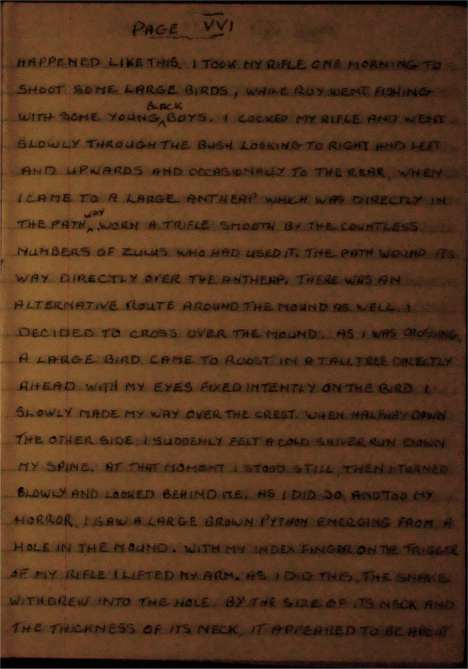 PAGE VVI
HAPPENED LIKE THIS. I TOOK MY RIFLE ONE MORNING TO
SHOOT SOME LARGE BIRDS, WHILE ROY WENT FISHING
WITH SOME YOUNG BLACK BOYS. I COCKED MY RIFLE AND WENT
SLOWLY THROUGH THE BUSH LOOKING TO RIGHT AND LEFT
AND UPWARDS AND OCCASIONALLY TO THE REAR, WHEN
I CAME TO A LARGE ANTHEAP WHICH WAS DIRECTLY IN
THE PATH WAY WORN A TRIFLE SMOOTH BY THE COUNTLESS
NUMBERS OF ZULUS WHO HAD USED IT. THE PATH WOUND ITS
WAY DIRECTLY OVER THE ANTHEAP. THERE WAS AN
ALTERNATIVE ROUTE AROUND THE MOUND AS WELL. I
DECIDED TO CROSS OVER THE MOUND. AS I WAS CROSSING,
A LARGE BIRD CAME TO ROOST IN A TALL TREE DIRECTLY
AHEAD WITH MY EYES FIXED INTENTLY ON THE BIRD I
SLOWLY MADE MY WAY OVER THE CREST. WHEN HALFWAY DOWN
THE OTHER SIDE I SUDDENLY FELT A COLD SHIVER RUN DOWN
MY SPINE. AT THAT MOMENT I STOOD STILL, THEN I TURNED
SLOWLY AND LOOKED BEHIND ME. AS I DID SO, AND TOO MY
HORROR, I SAW A LARGE BROWN PYTHON EMERGING FROM A
HOLE IN THE MOUND. WITH MY INDEX FINGER ON THE TRIGGER
OF MY RIFLE I LIFTED MY ARM. AS I DID THIS, THE SNAKE
WITHDREW INTO THE HOLE. BY THE SIZE OF ITS NECK AND
THE THICKNESS OF ITS NECK, IT APPEARED TO BE ABOUT